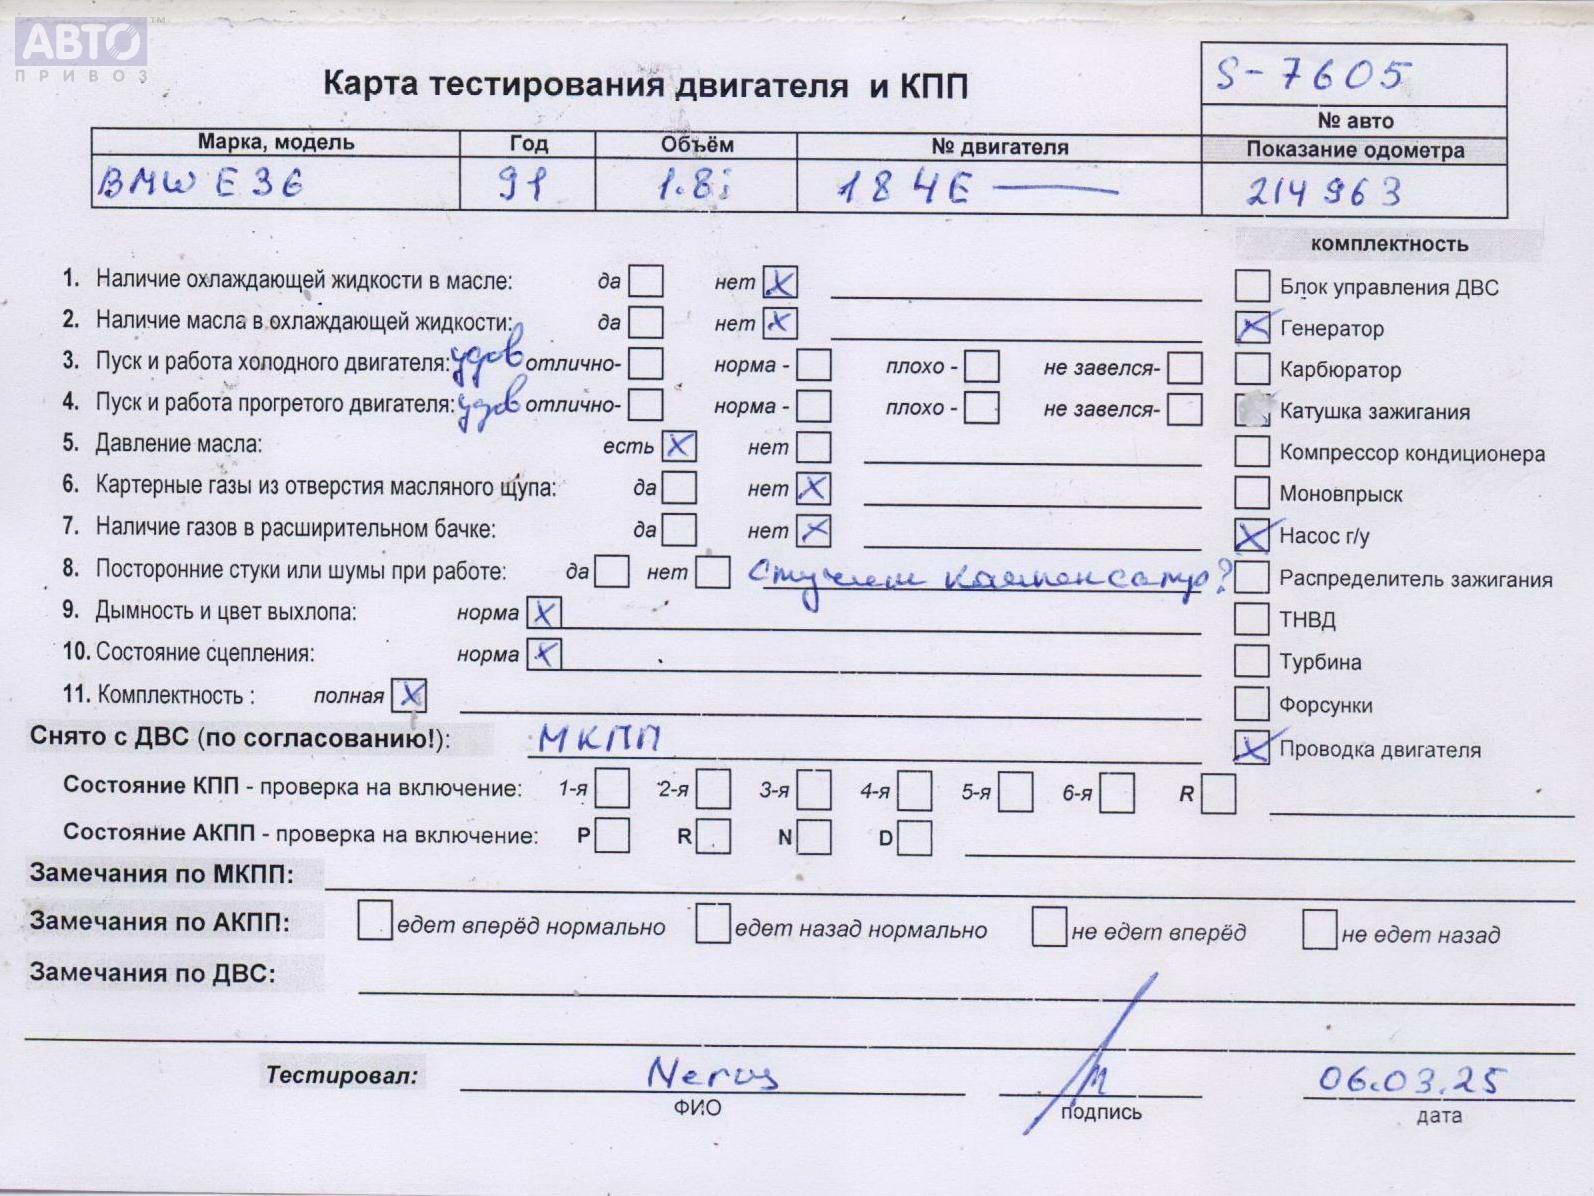 АВТО ™
ПРИВОЗ
S-7605
Карта тестирования двигателя и КПП
№ авто
Марка, модель Год Объём № двигателя Показание одометра
BMW E36 91 1.8i 184E 214963
комплектность
1. Наличие охлаждающей жидкости в масле: да нет X Блок управления ДВС
2. Наличие масла в охлаждающей жидкости: да нет X X Генератор
3. Пуск и работа холодного двигателя: удов отлично- норма - плохо - не завелся- Карбюратор
4. Пуск и работа прогретого двигателя: удов отлично- норма - плохо - не завелся- Катушка зажигания
5. Давление масла: есть X нет Компрессор кондиционера
6. Картерные газы из отверстия масляного щупа: да нет X Моновпрыск
7. Наличие газов в расширительном бачке: да нет X X Насос г/у
8. Посторонние стуки или шумы при работе: да нет Распределитель зажигания
9. Дымность и цвет выхлопа: норма X ТНВД
10. Состояние сцепления: норма X Турбина
11. Комплектность : полная X Форсунки
Снято с ДВС (по согласованию!): МКПП X Проводка двигателя
Состояние КПП - проверка на включение: 1-я 2-я 3-я 4-я 5-я 6-я R
Состояние АКПП - проверка на включение: P R N D
Замечания по МКПП:
Замечания по АКПП: едет вперёд нормально едет назад нормально не едет вперёд не едет назад
Замечания по ДВС:
Тестировал: 06.03.25
ФИО подпись дата